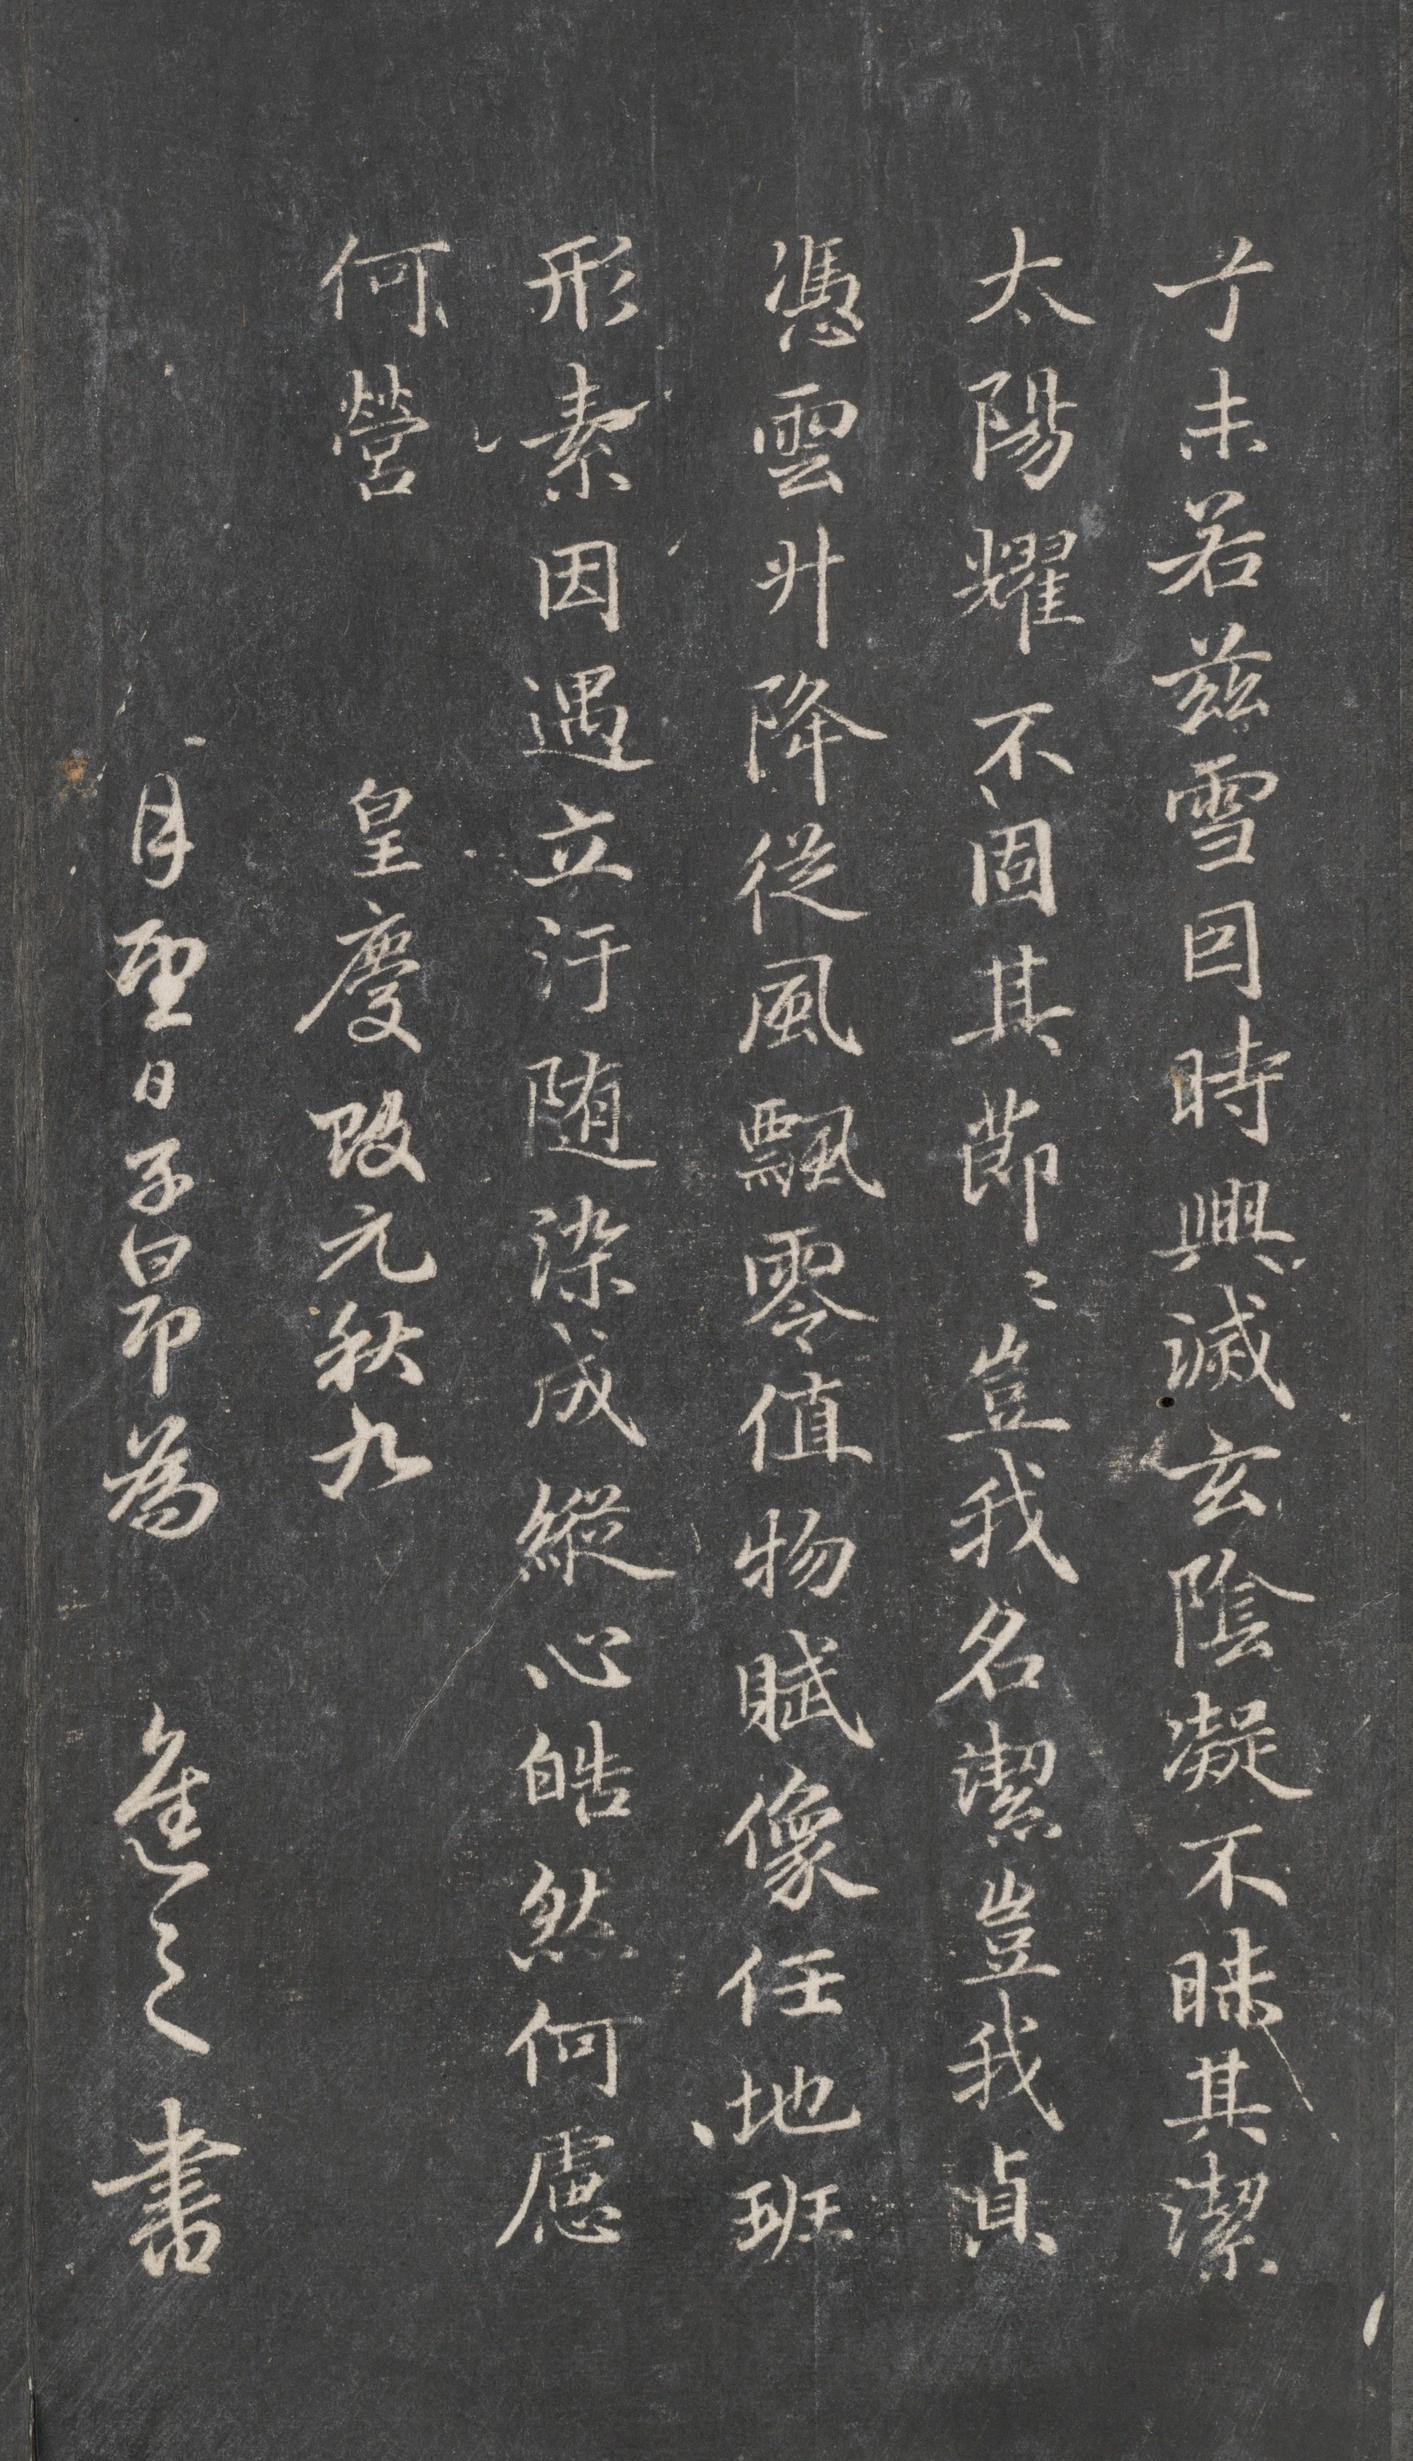 亍未若茲雪因時興滅玄陰凝不昧其潔
太陽耀不固其節〻豈我名潔豈我貞
憑雲升降從風飄零值物賦像任地班
形素因遇立汙随染成縱心皓然何慮
何營
皇慶改元秋九
月望日子昂為
進之書